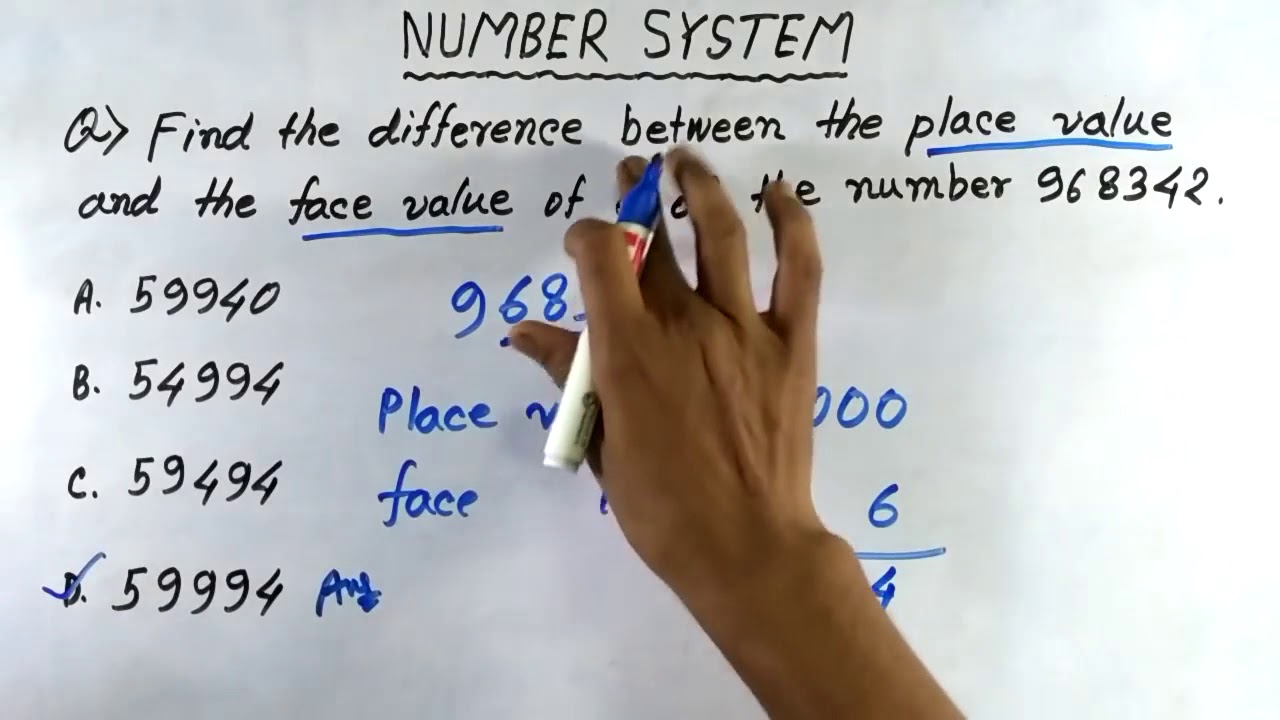 NUMBER SYSTEM
Q> Find the difference between the place value
and the face value of the number 968342.
A. 59940
968
B. 54994
Place 000
C. 59494
face 6
D. 59994 Ans
4